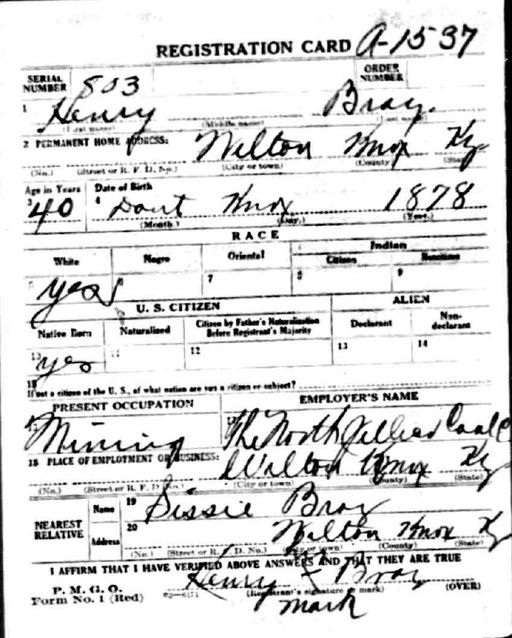 REGISTRATION CARD A-1537
SERIAL NUMBER 803 ORDER NUMBER
1 Henry Bray.
(First name) (Middle name) (Last name)
2 PERMANENT HOME ADDRESS: Wilton Knox Ky
(No.) (Street or R. F. D. No.) (City or town) (County) (State)
Age in Years Date of Birth
3 40 4 Dont Knox 1878
(Month) (Day.) (Year.)
RACE
White Negro Oriental Indian
Citizen Noncitizen
yes 6 7 8 9
U. S. CITIZEN ALIEN
Native Born Naturalized Citizen by Father's Naturalization Before Registrant's Majority Declarant Non-declarant
10 yes 11 12 13 14
15 If not a citizen of the U. S., of what nation are you a citizen or subject?
PRESENT OCCUPATION EMPLOYER'S NAME
Mining The North Jellico Coal C
18 PLACE OF EMPLOYMENT OR BUSINESS: Wilton Knox Ky
(No.) (Street or R. F. D. No.) (City or town) (County) (State)
NEAREST RELATIVE Name 19 Sissie Bray
Address 20 Wilton Knox Ky
(No.) (Street or R. F. D. No.) (City or town) (County) (State)
I AFFIRM THAT I HAVE VERIFIED ABOVE ANSWERS AND THAT THEY ARE TRUE
P. M. G. O. Henry X Bray
Form No. 1 (Red) 03-6171 (Registrant's signature or mark) (OVER)
mark